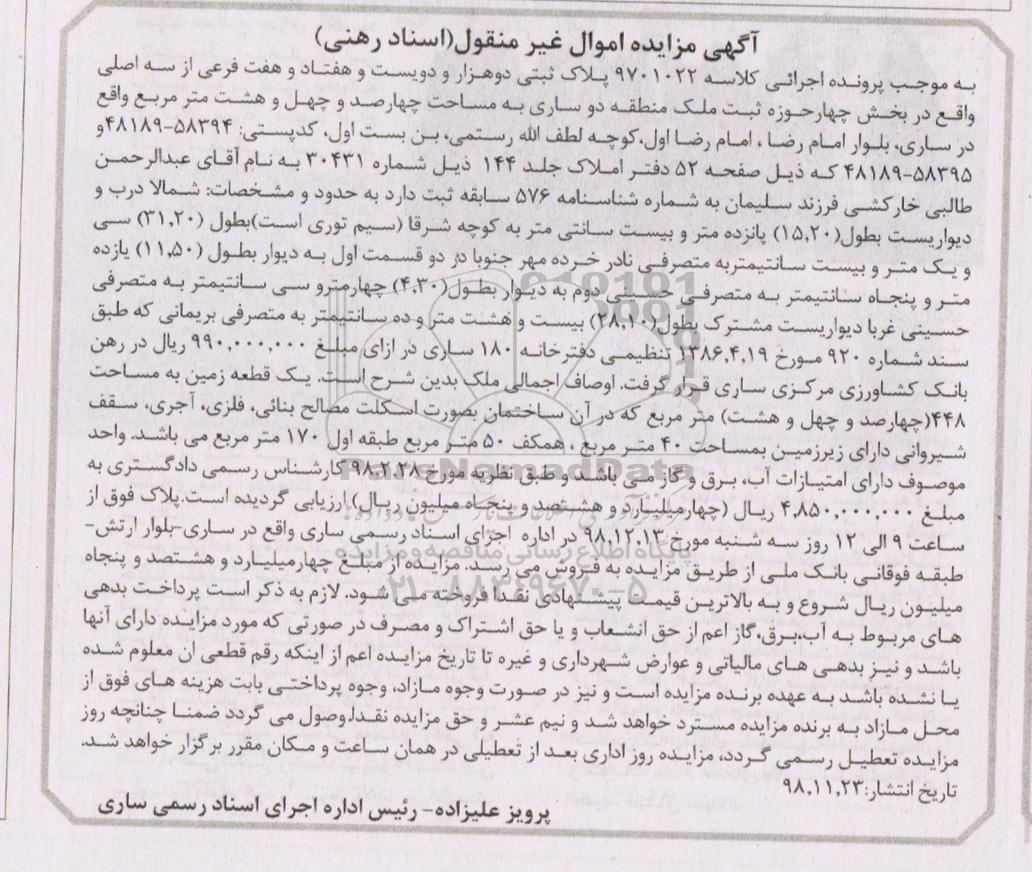 آگهی مزایده اموال غیر منقول(اسناد رهنی)
به موجب پرونده اجرائی کلاسه ۹۷۰۱۰۲۲ پلاک ثبتی دوهزار و دویست و هفتاد و هفت فرعی از سه اصلی
واقع در بخش چهارحوزه ثبت ملک منطقه دو ساری به مساحت چهارصد و چهل و هشت متر مربع واقع
در ساری، بلوار امام رضا ، امام رضا اول،کوچه لطف الله رستمی، بن بست اول، کدپستی: ۵۸۳۹۴-۴۸۱۸۹و
۵۸۳۹۵-۴۸۱۸۹ که ذیل صفحه ۵۲ دفتر املاک جلد ۱۴۴ ذیل شماره ۳۰۴۳۱ به نام آقای عبدالرحمن
طالبی خارکشی فرزند سلیمان به شماره شناسنامه ۵۷۶ سابقه ثبت دارد به حدود و مشخصات: شمالا درب و
دیواریست بطول(۱۵,۲۰) پانزده متر و بیست سانتی متر به کوچه شرقا (سیم توری است)بطول (۳۱,۲۰) سی
و یک متر و بیست سانتیمتربه متصرفی نادر خرده مهر جنوبا در دو قسمت اول به دیوار بطول (۱۱,۵۰) یازده
متر و پنجاه سانتیمتر به متصرفی حسینی دوم به دیوار بطول(۴,۳۰) چهارمترو سی سانتیمتر به متصرفی
حسینی غربا دیواریست مشترک بطول(۲۸,۱۰) بیست و هشت متر و ده سانتیمتر به متصرفی بریمانی که طبق
سند شماره ۹۲۰ مورخ ۱۳۸۶,۴,۱۹ تنظیمی دفترخانه ۱۸۰ ساری در ازای مبلغ ۹۹۰,۰۰۰,۰۰۰ ریال در رهن
بانک کشاورزی مرکزی ساری قرار گرفت. اوصاف اجمالی ملک بدین شرح است. یک قطعه زمین به مساحت
۴۴۸(چهارصد و چهل و هشت) متر مربع که در آن ساختمان بصورت اسکلت مصالح بنائی، فلزی، آجری، سقف
شیروانی دارای زیرزمین بمساحت ۴۰ متر مربع ، همکف ۵۰ متر مربع طبقه اول ۱۷۰ متر مربع می باشد. واحد
موصوف دارای امتیازات آب، برق و گاز می باشد و طبق نظریه مورخ ۹۸,۲,۲۸ کارشناس رسمی دادگستری به
مبلغ ۴,۸۵۰,۰۰۰,۰۰۰ ریال (چهارمیلیارد و هشتصد و پنجاه میلیون ریال) ارزیابی گردیده است.پلاک فوق از
ساعت ۹ الی ۱۲ روز سه شنبه مورخ ۹۸,۱۲,۱۳ در اداره اجرای اسناد رسمی ساری واقع در ساری-بلوار ارتش-
طبقه فوقانی بانک ملی از طریق مزایده به فروش می رسد. مزایده از مبلغ چهارمیلیارد و هشتصد و پنجاه
میلیون ریال شروع و به بالاترین قیمت پیشنهادی نقدا فروخته می شود. لازم به ذکر است پرداخت بدهی
های مربوط به آب،برق،گاز اعم از حق انشعاب و یا حق اشتراک و مصرف در صورتی که مورد مزایده دارای آنها
باشد و نیز بدهی های مالیاتی و عوارض شهرداری و غیره تا تاریخ مزایده اعم از اینکه رقم قطعی ان معلوم شده
یا نشده باشد به عهده برنده مزایده است و نیز در صورت وجوه مازاد، وجوه پرداختی بابت هزینه های فوق از
محل مازاد به برنده مزایده مسترد خواهد شد و نیم عشر و حق مزایده نقدا,وصول می گردد ضمنا چنانچه روز
مزایده تعطیل رسمی گردد، مزایده روز اداری بعد از تعطیلی در همان ساعت و مکان مقرر برگزار خواهد شد.
تاریخ انتشار:۹۸,۱۱,۲۳
پرویز علیزاده- رئیس اداره اجرای اسناد رسمی ساری
ParsNamadData
پایگاه اطلاع رسانی مناقصه و مزایده
۰۲۱-۸۸۳۴۹۶۷۰-۵